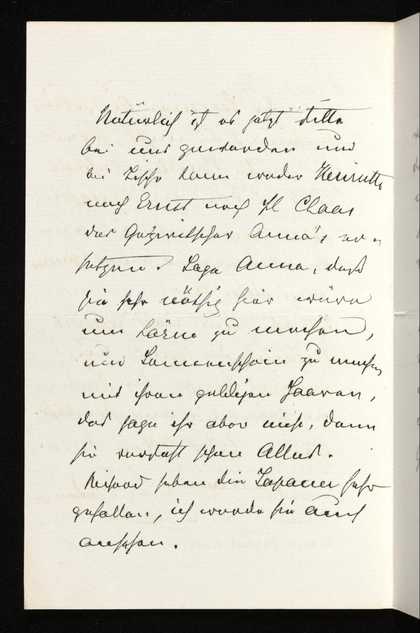 Natürlich ist es jetzt stille
bei uns geworden und
bei Tische kann weder Henriette
noch Ernst noch Frl Claas
das Gezwitscher Anna's er-
setzen. Sage Anna, daß
sie sehr nöthig hier wäre
um Lärm zu machen,
und Sonnenschein zu machen
mit ihren goldigen Haaren,
das sage ihr aber nicht, denn
sie versteht schon Alles.
Richard haben die Japaner sehr
gefallen, ich werde sie auch
ansehen.